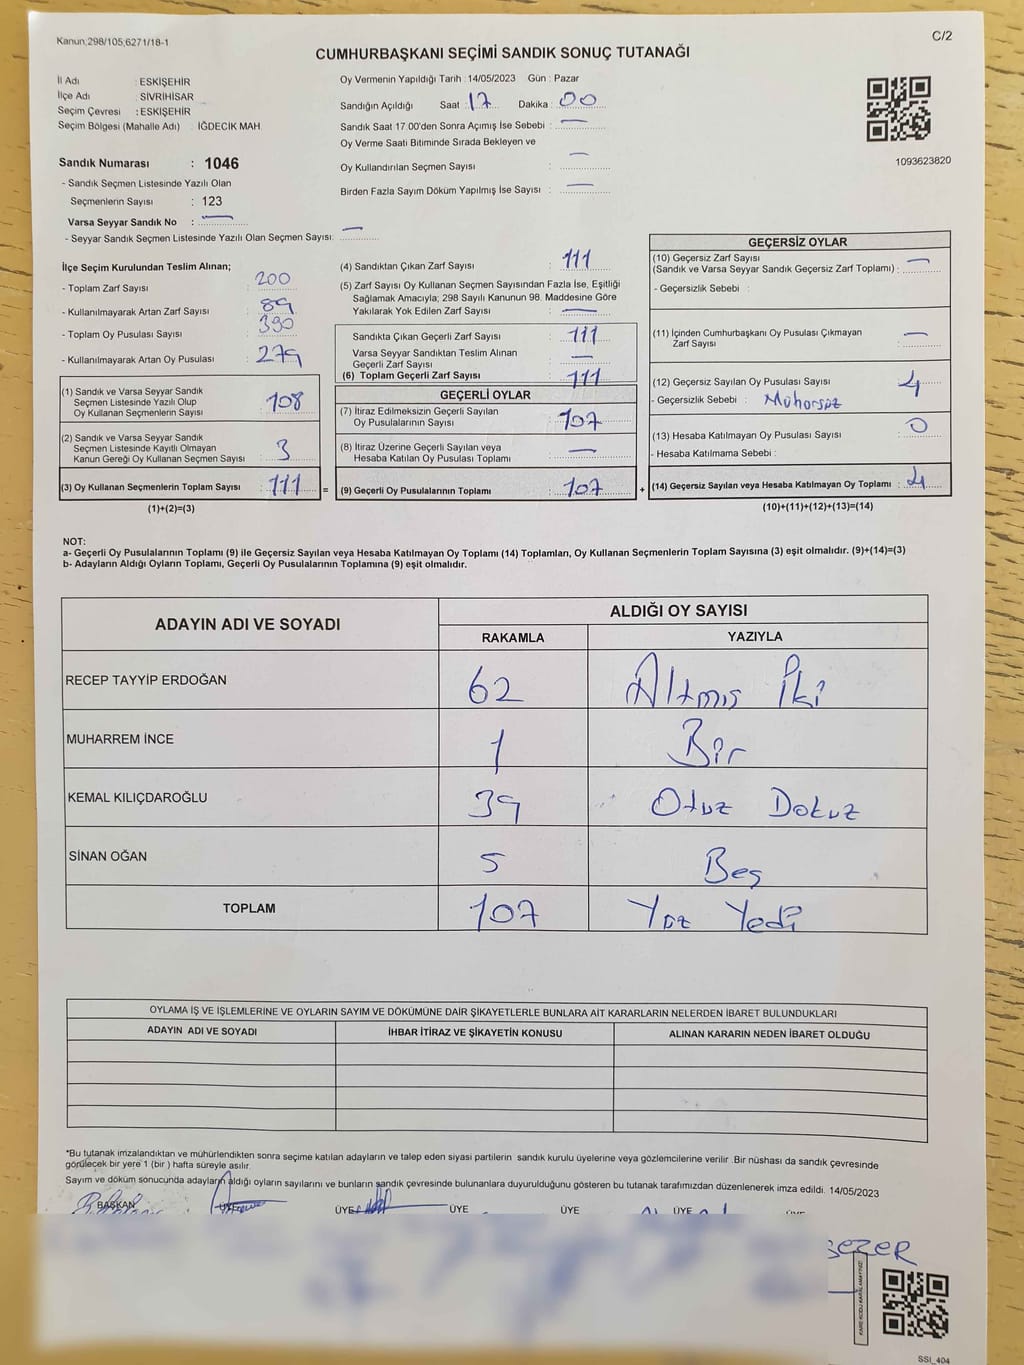 Kanun;298/105;6271/18-1
C/2
CUMHURBAŞKANI SEÇİMİ SANDIK SONUÇ TUTANAĞI
İl Adı : ESKİŞEHİR
İlçe Adı : SİVRİHİSAR
Seçim Çevresi : ESKİŞEHİR
Seçim Bölgesi (Mahalle Adı) : İĞDECİK MAH.
Oy Vermenin Yapıldığı Tarih : 14/05/2023 Gün : Pazar
Sandığın Açıldığı Saat : 17 Dakika : 00
Sandık Saat 17.00'den Sonra Açımış İse Sebebi : —
Oy Verme Saati Bitiminde Sırada Bekleyen ve
Oy Kullandırılan Seçmen Sayısı : —
Birden Fazla Sayım Döküm Yapılmış İse Sayısı : —
1093623820
Sandık Numarası : 1046
- Sandık Seçmen Listesinde Yazılı Olan
Seçmenlerin Sayısı : 123
Varsa Seyyar Sandık No : —
- Seyyar Sandık Seçmen Listesinde Yazılı Olan Seçmen Sayısı: —
İlçe Seçim Kurulundan Teslim Alınan;
- Toplam Zarf Sayısı : 200
- Kullanılmayarak Artan Zarf Sayısı : 89
- Toplam Oy Pusulası Sayısı : 390
- Kullanılmayarak Artan Oy Pusulası : 279
(1) Sandık ve Varsa Seyyar Sandık
Seçmen Listesinde Yazılı Olup
Oy Kullanan Seçmenlerin Sayısı : 108
(2) Sandık ve Varsa Seyyar Sandık
Seçmen Listesinde Kayıtlı Olmayan
Kanun Gereği Oy Kullanan Seçmen Sayısı : 3
(3) Oy Kullanan Seçmenlerin Toplam Sayısı : 111 =
(1)+(2)=(3)
(4) Sandıktan Çıkan Zarf Sayısı : 111
(5) Zarf Sayısı Oy Kullanan Seçmen Sayısından Fazla İse, Eşitliği
Sağlamak Amacıyla; 298 Sayılı Kanunun 98. Maddesine Göre
Yakılarak Yok Edilen Zarf Sayısı : —
Sandıkta Çıkan Geçerli Zarf Sayısı : 111
Varsa Seyyar Sandıktan Teslim Alınan
Geçerli Zarf Sayısı : —
(6) Toplam Geçerli Zarf Sayısı : 111
GEÇERLİ OYLAR
(7) İtiraz Edilmeksizin Geçerli Sayılan
Oy Pusulalarının Sayısı : 107
(8) İtiraz Üzerine Geçerli Sayılan veya
Hesaba Katılan Oy Pusulası Toplamı : —
(9) Geçerli Oy Pusulalarının Toplamı : 107 +
GEÇERSİZ OYLAR
(10) Geçersiz Zarf Sayısı
(Sandık ve Varsa Seyyar Sandık Geçersiz Zarf Toplamı) : —
- Geçersizlik Sebebi :
(11) İçinden Cumhurbaşkanı Oy Pusulası Çıkmayan
Zarf Sayısı : —
(12) Geçersiz Sayılan Oy Pusulası Sayısı : 4
- Geçersizlik Sebebi : Mühürsüz
(13) Hesaba Katılmayan Oy Pusulası Sayısı : 0
- Hesaba Katılmama Sebebi :
(14) Geçersiz Sayılan veya Hesaba Katılmayan Oy Toplamı : 4
(10)+(11)+(12)+(13)=(14)
NOT:
a- Geçerli Oy Pusulalarının Toplamı (9) ile Geçersiz Sayılan veya Hesaba Katılmayan Oy Toplamı (14) Toplamları, Oy Kullanan Seçmenlerin Toplam Sayısına (3) eşit olmalıdır. (9)+(14)=(3)
b- Adayların Aldığı Oyların Toplamı, Geçerli Oy Pusulalarının Toplamına (9) eşit olmalıdır.
ADAYIN ADI VE SOYADI
ALDIĞI OY SAYISI
RAKAMLA YAZIYLA
RECEP TAYYİP ERDOĞAN 62 Altmış İki
MUHARREM İNCE 1 Bir
KEMAL KILIÇDAROĞLU 39 Otuz Dokuz
SİNAN OĞAN 5 Beş
TOPLAM 107 Yüz Yedi
OYLAMA İŞ VE İŞLEMLERİNE VE OYLARIN SAYIM VE DÖKÜMÜNE DAİR ŞİKAYETLERLE BUNLARA AİT KARARLARIN NELERDEN İBARET BULUNDUKLARI
ADAYIN ADI VE SOYADI İHBAR İTİRAZ VE ŞİKAYETİN KONUSU ALINAN KARARIN NEDEN İBARET OLDUĞU
*Bu tutanak imzalandıktan ve mühürlendikten sonra seçime katılan adayların ve talep eden siyasi partilerin sandık kurulu üyelerine veya gözlemcilerine verilir .Bir nüshası da sandık çevresinde
görülecek bir yere 1 (bir ) hafta süreyle asılır.
Sayım ve döküm sonucunda adayların aldığı oyların sayılarını ve bunların sandık çevresinde bulunanlara duyurulduğunu gösteren bu tutanak tarafımızdan düzenlenerek imza edildi. 14/05/2023
BAŞKAN ÜYE ÜYE ÜYE ÜYE ÜYE
SEZER
SSI_404